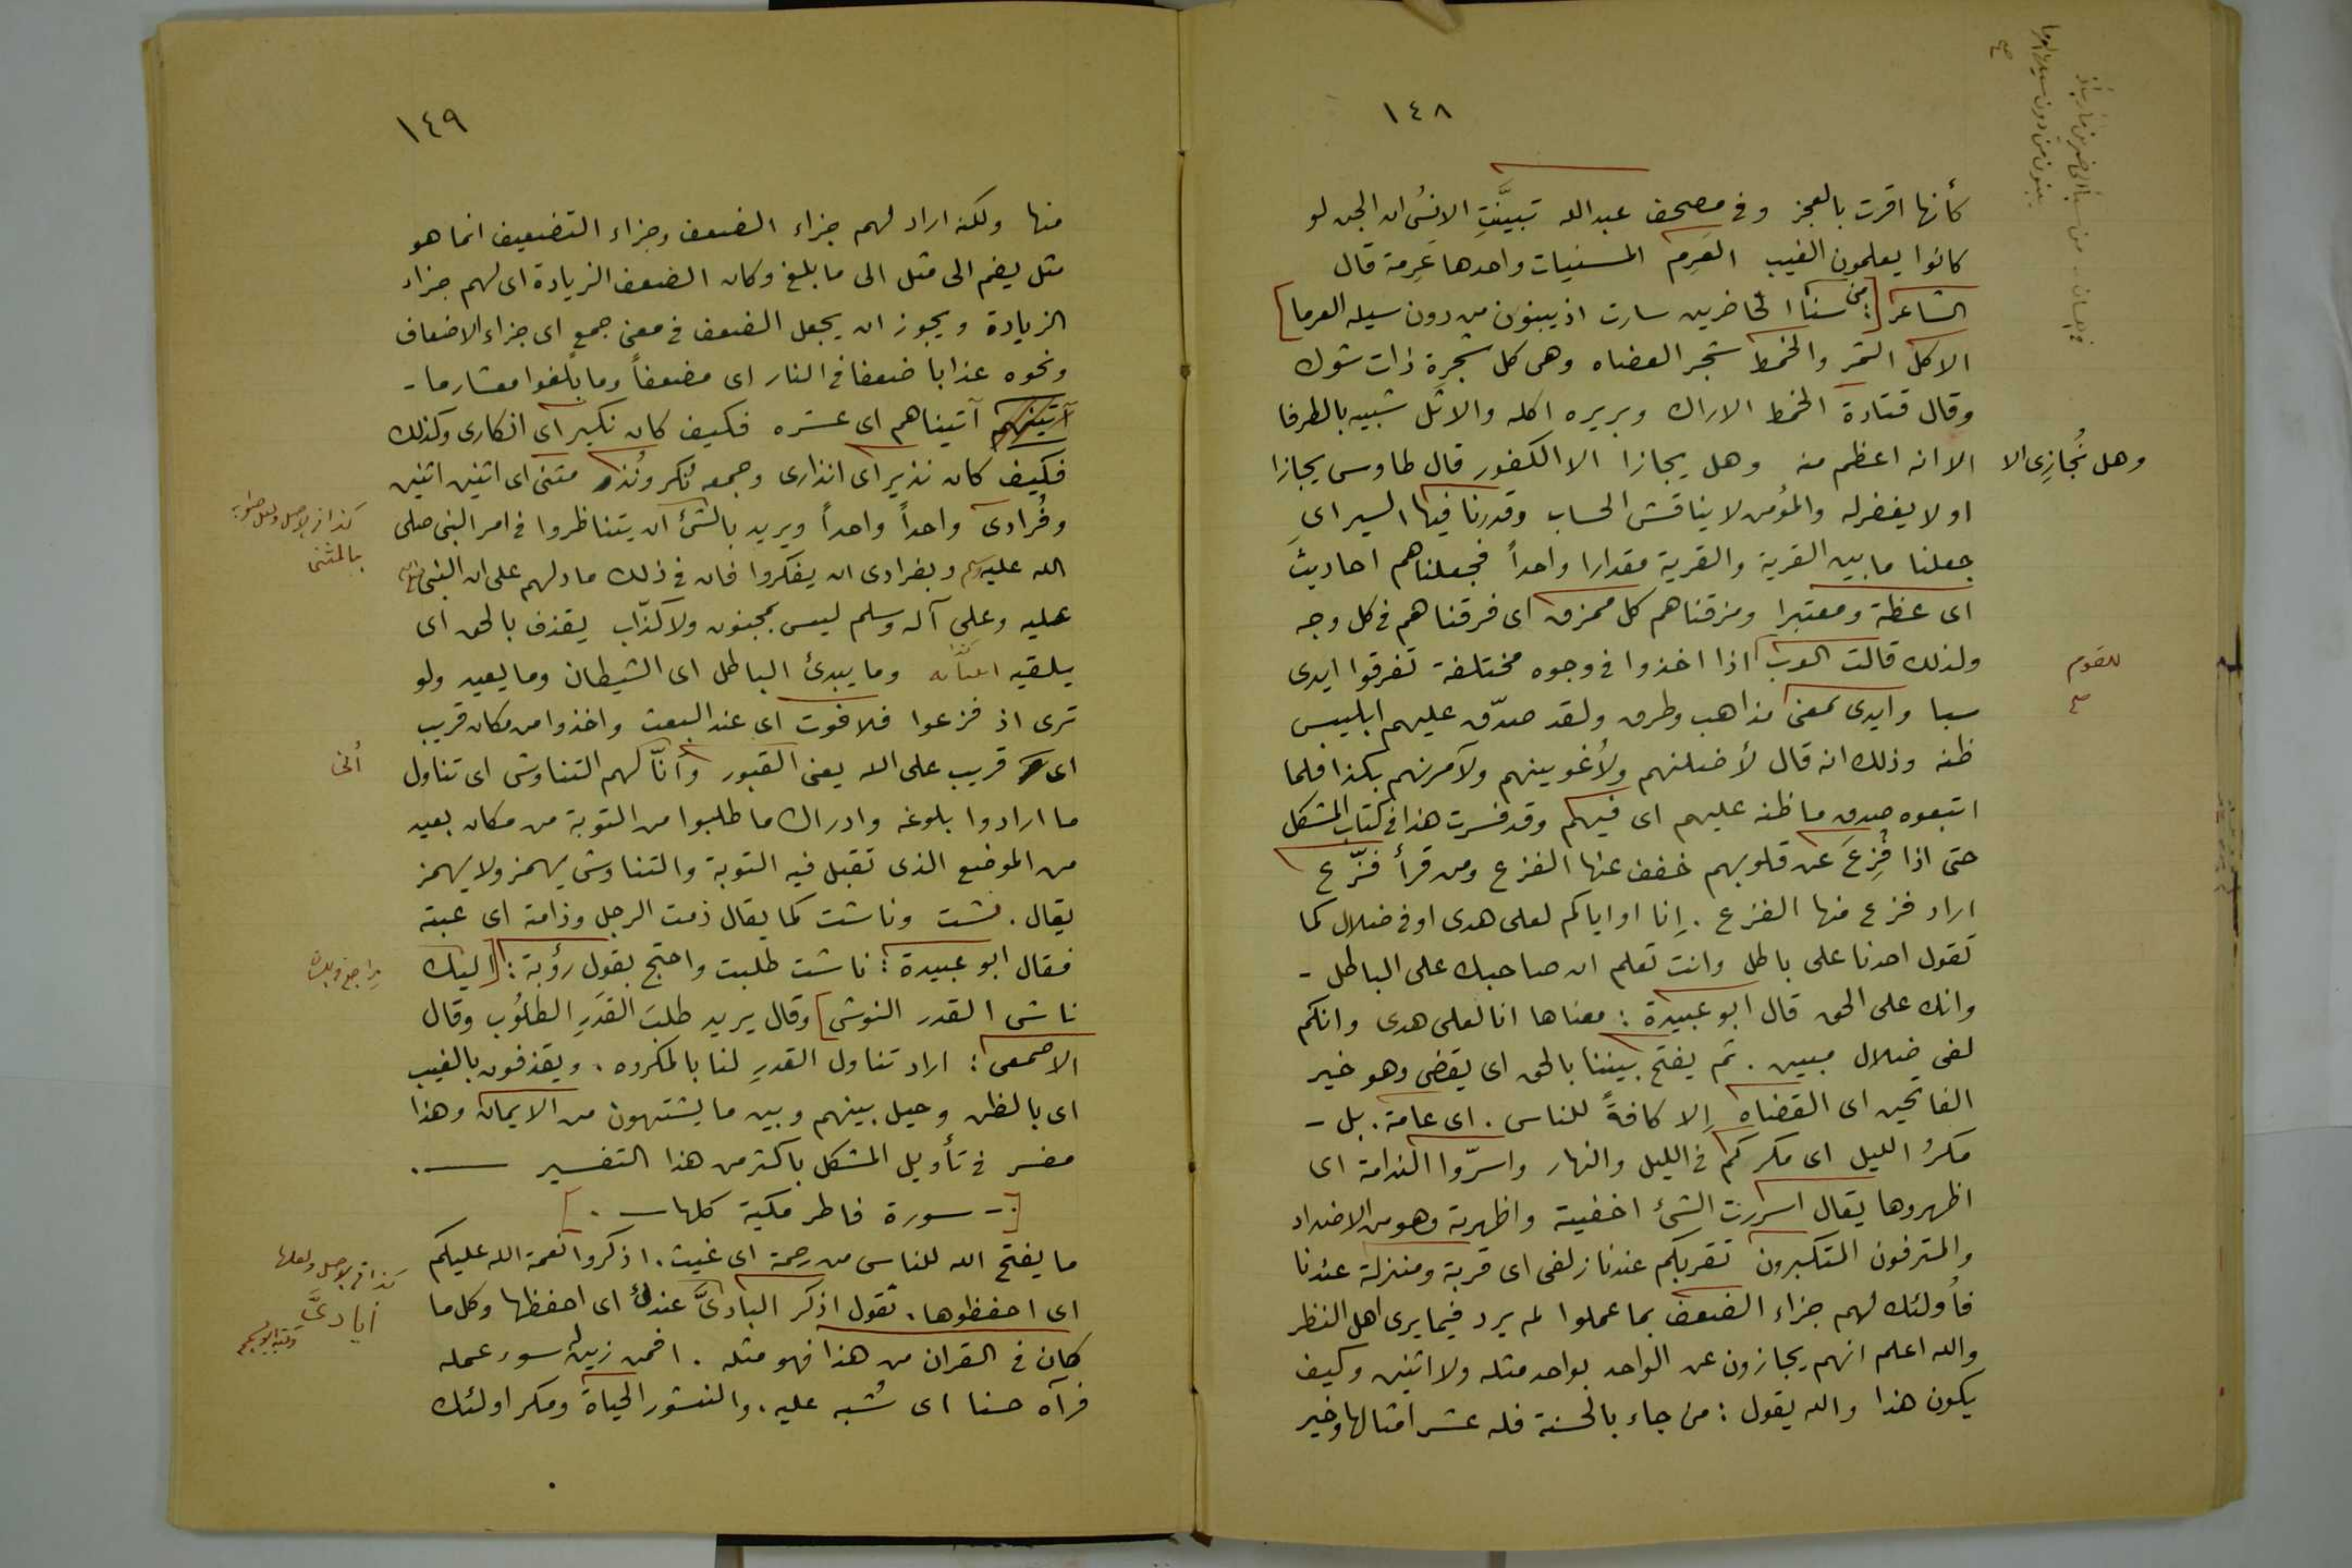 ١٤٨
كأنها اقرت بالعجز وفى مصحف عبدالله تبينَّتِ الانسُ ان الجن لو
كانوا يعلمون الغيب العَرِم المسنيات واحدها عَرِمة قال
الشاعر [: من سبا الحاضرين مارب اذ يبنون من دون سيله العرما]
الاكل الثمر والخمط شجر العضاه وهى كل شجرة ذات شوك
وقال قتادة الخمط الاراك وبريره اكله والاثل شبيه بالطرفا
الا انه اعظم منه وهل يجازا الا الكفور قال طاوس يجازا
وهل نُجازِى الا
او لا يغفر له والمؤمن لا يناقش الحساب وقدرنا فيها السير اى
جعلنا ما بين القرية والقرية مقدارا واحداً فجعلناهم احاديث
اى عظة ومعتبرا ومزقناهم كل ممزق اى فرقناهم فى كل وجه
ولذلك قالت العرب اذا اخذوا فى وجوه مختلفة تفرقوا ايدى
للقوم
سبا وايدى بمعنى مذاهب وطرق ولقد صدّق عليهم ابليس
ظنه وذلك انه قال لأضلنهم ولأغوينهم ولآمرنهم بكذا فلما
اتبعوه صدق ما ظنه عليهم اى فيهم وقد فسرت هذا فى كتاب المشكل
حتى اذا فُزِعَ عن قلوبهم خفف عنها الفزع ومن قرأ فزّع
اراد فزع منها الفزع . اِنا او اياكم لعلى هدى او فى ضلال كما
تقول احدنا على باطل وانت تعلم ان صاحبك على الباطل -
وانك على الحق قال ابو عبيدة : معناها انا لعلى هدى وانكم
لفى ضلال مبين . ثم يفتح بيننا بالحق اى يقضى وهو خير
الفاتحين اى القضاه اِلا كافةً للناس . اى عامة . بل -
مكرُ الليل اى مكركم فى الليل والنهار واسرّوا الندامة اى
اظهروها يقال اسررت الشئ اخفيته واظهرته وهو من الاضداد
والمترفون المتكبرون تقربكم عندنا زلفى اى قربة ومنزلة عندنا
فأولئك لهم جزاء الضعف بما عملوا لم يرد فيما يرى اهل النظر
والله اعلم انهم يجازون عن الواحد بواحد مثله ولا اثنين وكيف
يكون هذا والله يقول : من جاء بالحسنة فله عشر امثالها وخير
١٤٩
منها ولكنه اراد لهم جزاء الضعف وجزاء التضعيف انما هو
مثل يضم الى مثل الى ما بلغ وكان الضعف الزيادة اى لهم جزاء
الزيادة ويجوز ان يجعل الضعف فى معنى جمع اى جزاء الاضعاف
ونحوه عذابا ضعفا فى النار اى مضعفاً وما بلغوا معشار ما -
آتينهم آتيناهم اى عشره فكيف كان نكير اى انكارى وكذلك
فكيف كان نذير اى انذارى وجمعه نُكر ونُذر مثنى اى اثنين اثنين
وفُرادى واحداً واحداً ويريد بالشئ ان يتناظروا فى امر النبى صلى
كذا فى الاصل ولعل صوابه
بالمثنى
الله عليه وسلم وبفرادى ان يفكروا فان فى ذلك ما دلهم على ان النبى
عليه وعلى آله وسلم ليس بمجنون ولا كذّاب يقذف بالحق اى
يلقيه وما يبدئ الباطل اى الشيطان وما يعيد ولو
ترى اذ فزعوا فلا فوت اى عند البعث واخذوا من مكان قريب
اى قريب على الله يعنى القبور وأنّا لهم التناوش اى تناول
أنى
ما ارادوا بلوغه وادراك ما طلبوا من التوبة من مكان بعيد
من الموضع الذى تقبل فيه التوبة والتناوش يهمز ولا يهمز
يقال . نشت وناشت كما يقال ذمت الرجل وذامته اى عبته
فقال ابو عبيدة : ناشت طلبت واحتج بقول رؤبة : [اليك
ناش القدر النوش] وقال يريد طلبَ القَدَرِ الطلوُب وقال
الاصمعى : اراد تناول القدرِ لنا بالمكروه . ويقذفون بالغيب
اى بالظن وحيل بينهم وبين ما يشتهون من الايمان وهذا
مفسر فى تأويل المشكل باكثر من هذا التفسير .
[. - سورة فاطر مكية كلها - .]
ما يفتح الله للناس من رحمة اى غيث . اذكروا نعمة الله عليكم
اى احفظوها . تقول اذكر البادىَّ عندك اى احفظها وكل ما
كذا فى الاصل ولعلها
أيادىَّ
كان فى القران من هذا فهو مثله . افمن زين له سوء عمله
فرآه حسنا اى شُبه عليه . والنشور الحياة ومكر اولئك